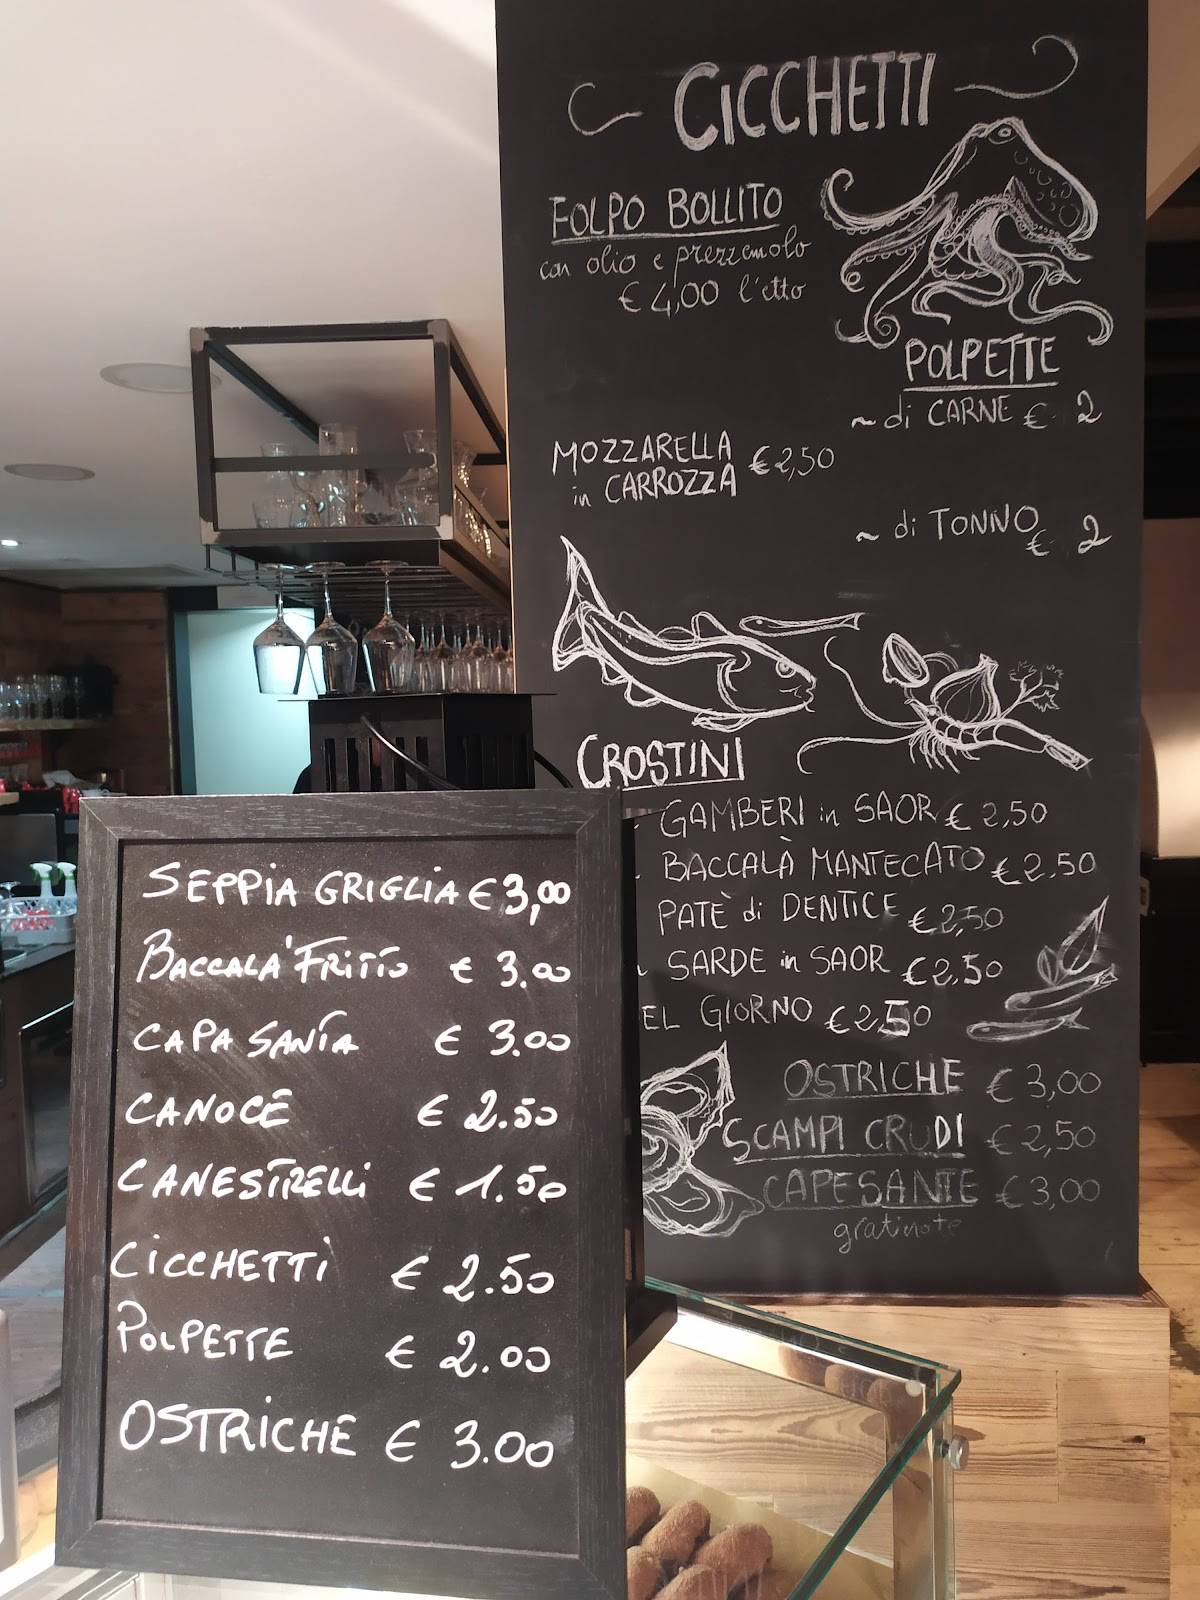 CICCHETTI
FOLPO BOLLITO
con olio e prezzemolo
€ 4,00 l'etto
POLPETTE
~ di CARNE € 2
MOZZARELLA
in CARROZZA € 2,50
~ di TONNO € 2
CROSTINI
GAMBERI in SAOR € 2,50
BACCALÀ MANTECATO € 2.50
PATÈ di DENTICE € 2,50
SARDE in SAOR € 2,50
EL GIORNO € 2,50
OSTRICHE € 3,00
SCAMPI CRUDI € 2,50
CAPESANTE € 3,00
gratinate
SEPPIA GRIGLIA € 3,00
BACCALA' FRITTO € 3.00
CAPA SANTA € 3.00
CANOCE € 2.50
CANESTRELLI € 1.50
CICCHETTI € 2.50
POLPETTE € 2.00
OSTRICHE € 3.00